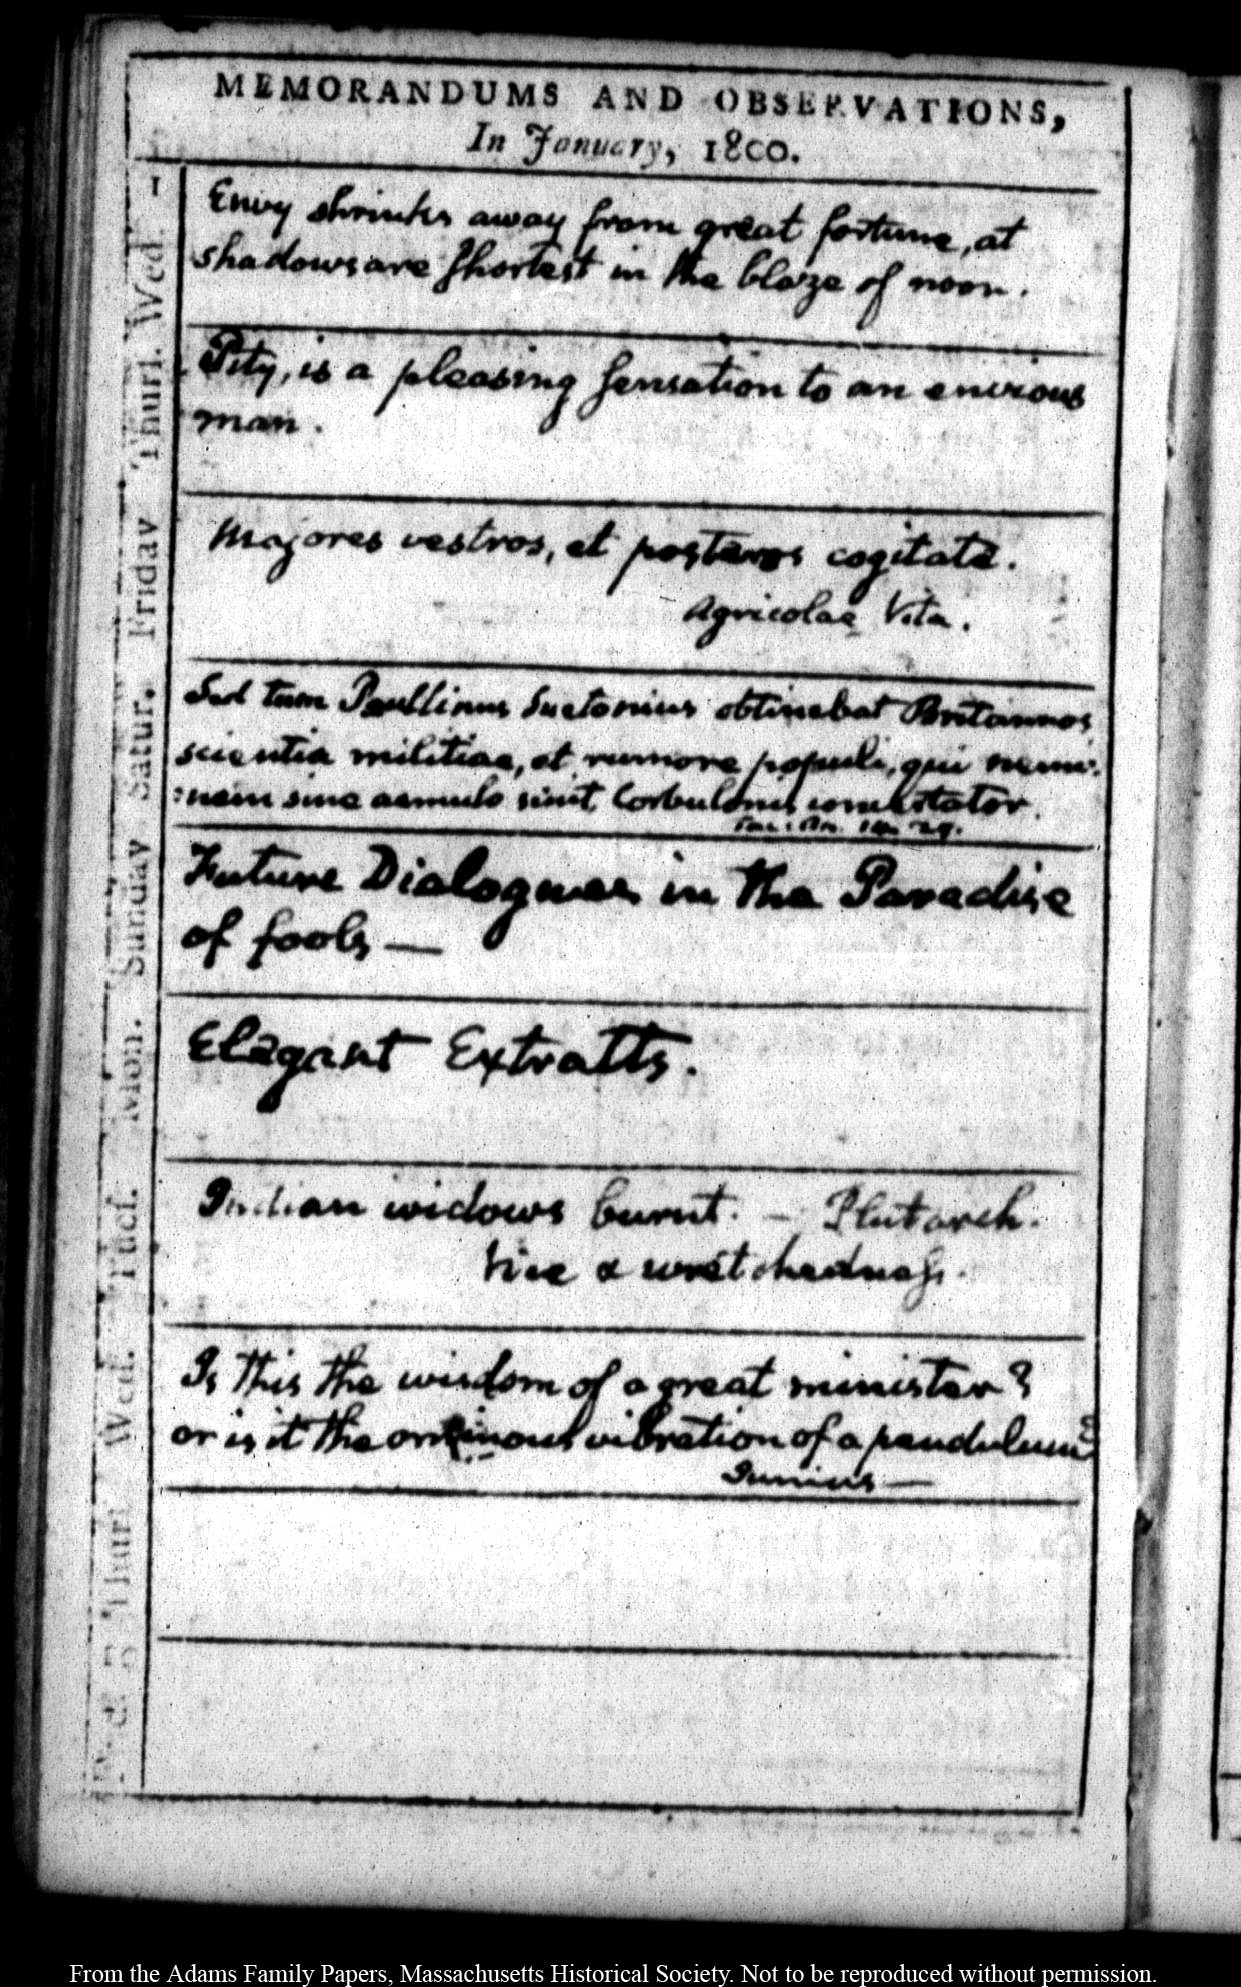 MEMORANDUMS AND OBSERVATIONS,
In January, 1800.
1
Wed.
Envy shrinks away from great fortune, at
shadows are shortest in the blaze of noon.
Thurs.
Pity, is a pleasing sensation to an envious
man.
Friday
Majores vestros, et posteros cogitate.
Agricolae Vita.
Satur.
Sed tum Paullinus Suetonius obtinebat Britannos,
scientia militiae, et rumore populi, qui nemi-
:nem sine aemulo sinit Corbulonis concertator.
Tac. An. 14. 29.
Sunday
Future Dialogues in the Paradise
of fools —
Mon.
Elegant Extracts.
Tues.
Indian widows burnt. — Plutarch.
Vice & wretchedness.
Wed.
Is this the wisdom of a great minister?
or is it the ominous vibration of a pendulum?
Junius —
Thur
From the Adams Family Papers, Massachusetts Historical Society. Not to be reproduced without permission.